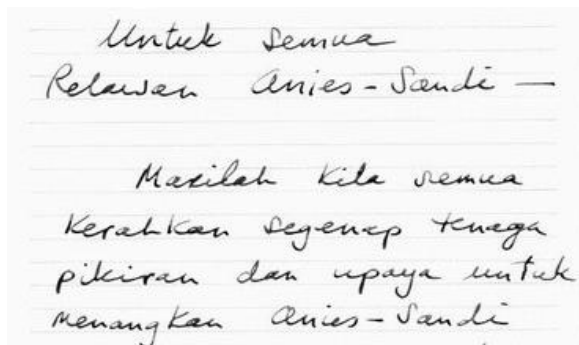 Untuk semua
Relawan Anies-Sandi —
Marilah kita semua
Kerahkan segenap tenaga
pikiran dan upaya untuk
menangkan Anies-Sandi